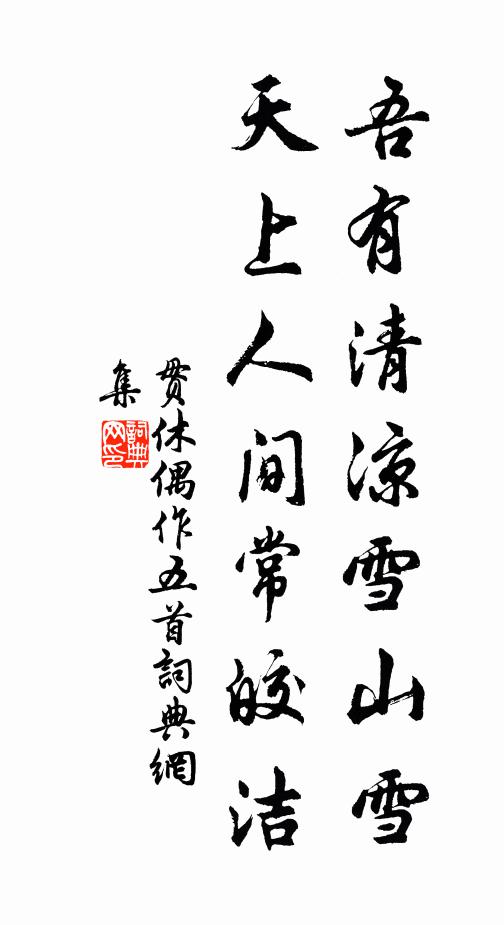 吾有清凉雪山雪
天上人间常皎洁
贯休偶作五首詞典網
集
詞典
网印